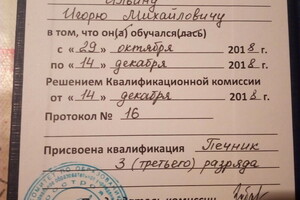 Игорю Михайловичу
в том, что он(а) обучался(лась)
с «29» октября 2018 г.
по «14» декабря 2018 г.
Решением Квалификационной комиссии
от «14» декабря 2018 г.
Протокол № 16
Присвоена квалификация Печник
3 (третьего) разряда
комиссии